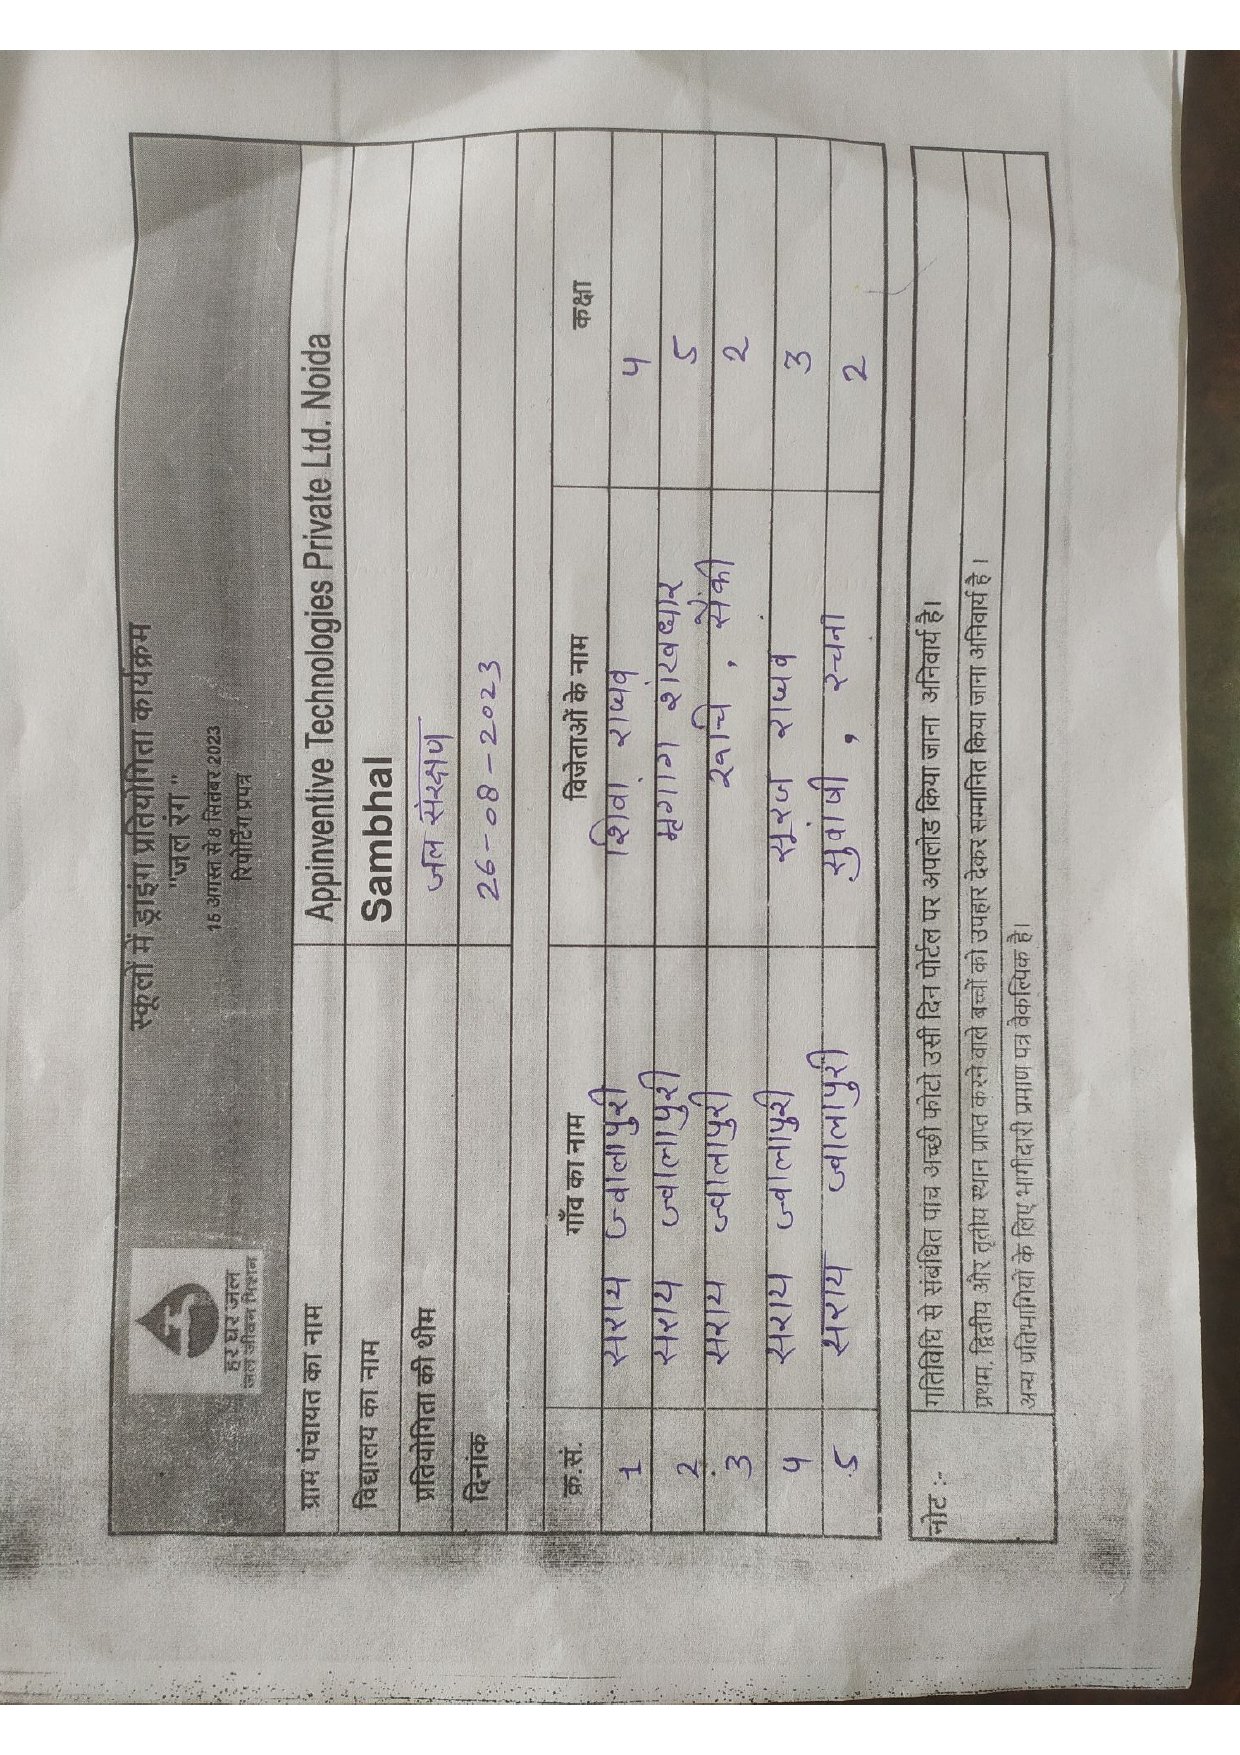 स्कूलों में ड्राइंग प्रतियोगिता कार्यक्रम
"जल रंग"
15 अगस्त से 8 सितंबर 2023
रिपोर्टिंग प्रपत्र
हर घर जल
जल जीवन मिशन
ग्राम पंचायत का नाम Appinventive Technologies Private Ltd. Noida
विद्यालय का नाम Sambhal
प्रतियोगिता की थीम जल संरक्षण
दिनांक 26-08-2023
क्र.सं. गाँव का नाम विजेताओं के नाम कक्षा
1 सराय ज्वालापुरी शिवा राघव ५
2 सराय ज्वालापुरी मृगांग शंखधार 5
3 सराय ज्वालापुरी रूचि , सैंकी 2
५ सराय ज्वालापुरी सूरज राघव 3
5 सराय ज्वालापुरी , रचना 2
नोट :- गतिविधि से संबंधित पांच अच्छी फोटो उसी दिन पोर्टल पर अपलोड किया जाना अनिवार्य है।
प्रथम, द्वितीय और तृतीय स्थान प्राप्त करने वाले बच्चों को उपहार देकर सम्मानित किया जाना अनिवार्य है।
अन्य प्रतिभागियों के लिए भागीदारी प्रमाण पत्र वैकल्पिक है।